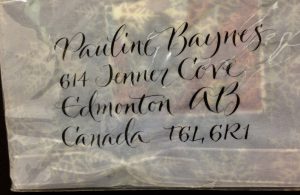 Pauline Baynes
614 Jenner Cove
Edmonton AB
Canada T6L 6R1